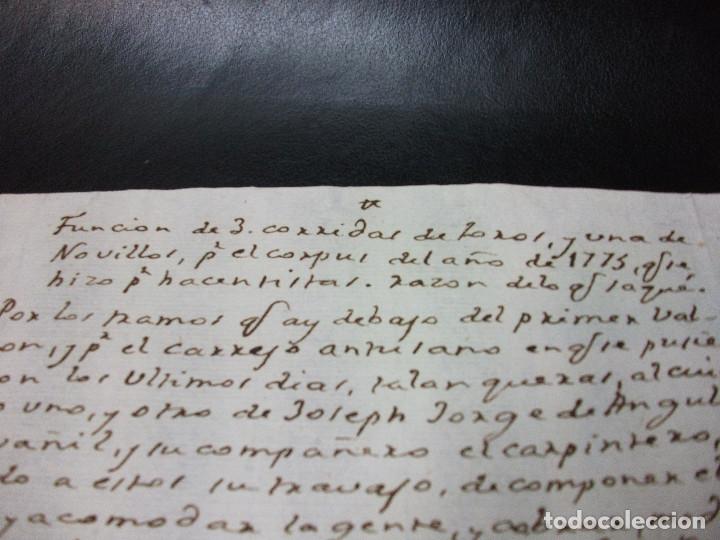 Funcion de 3. corridas de toros, y una de
Novillos, pr el corpus del año de 1775, qe se
hizo pr hacentistas. razon de lo qe saqué.
Por los tramos qe ay debajo del primer val-
on, y pr el carrejo antusano en qe se pusie
on los ultimos dias, talanqueras, al cui
o uno, y otro de Joseph Jorge de Angul
vañil, y su compañero el carpintero,
do a estos su travajo, de componer e
y acomodar la gente, y
todocoleccion